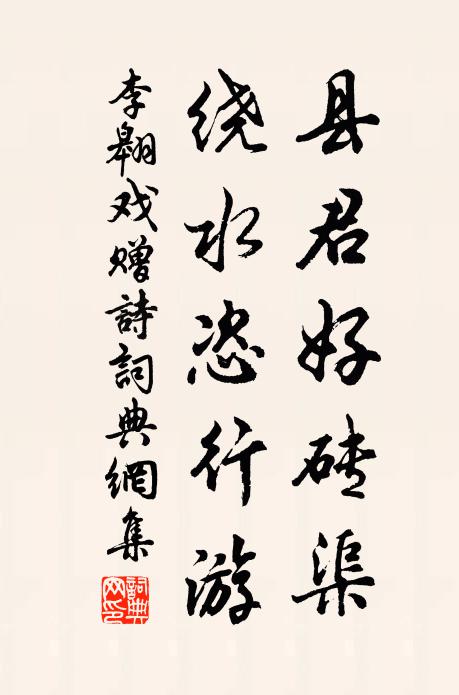 县君好砖渠
绕水恣行游
李翱戏赠詩詞典網集
詞典网印